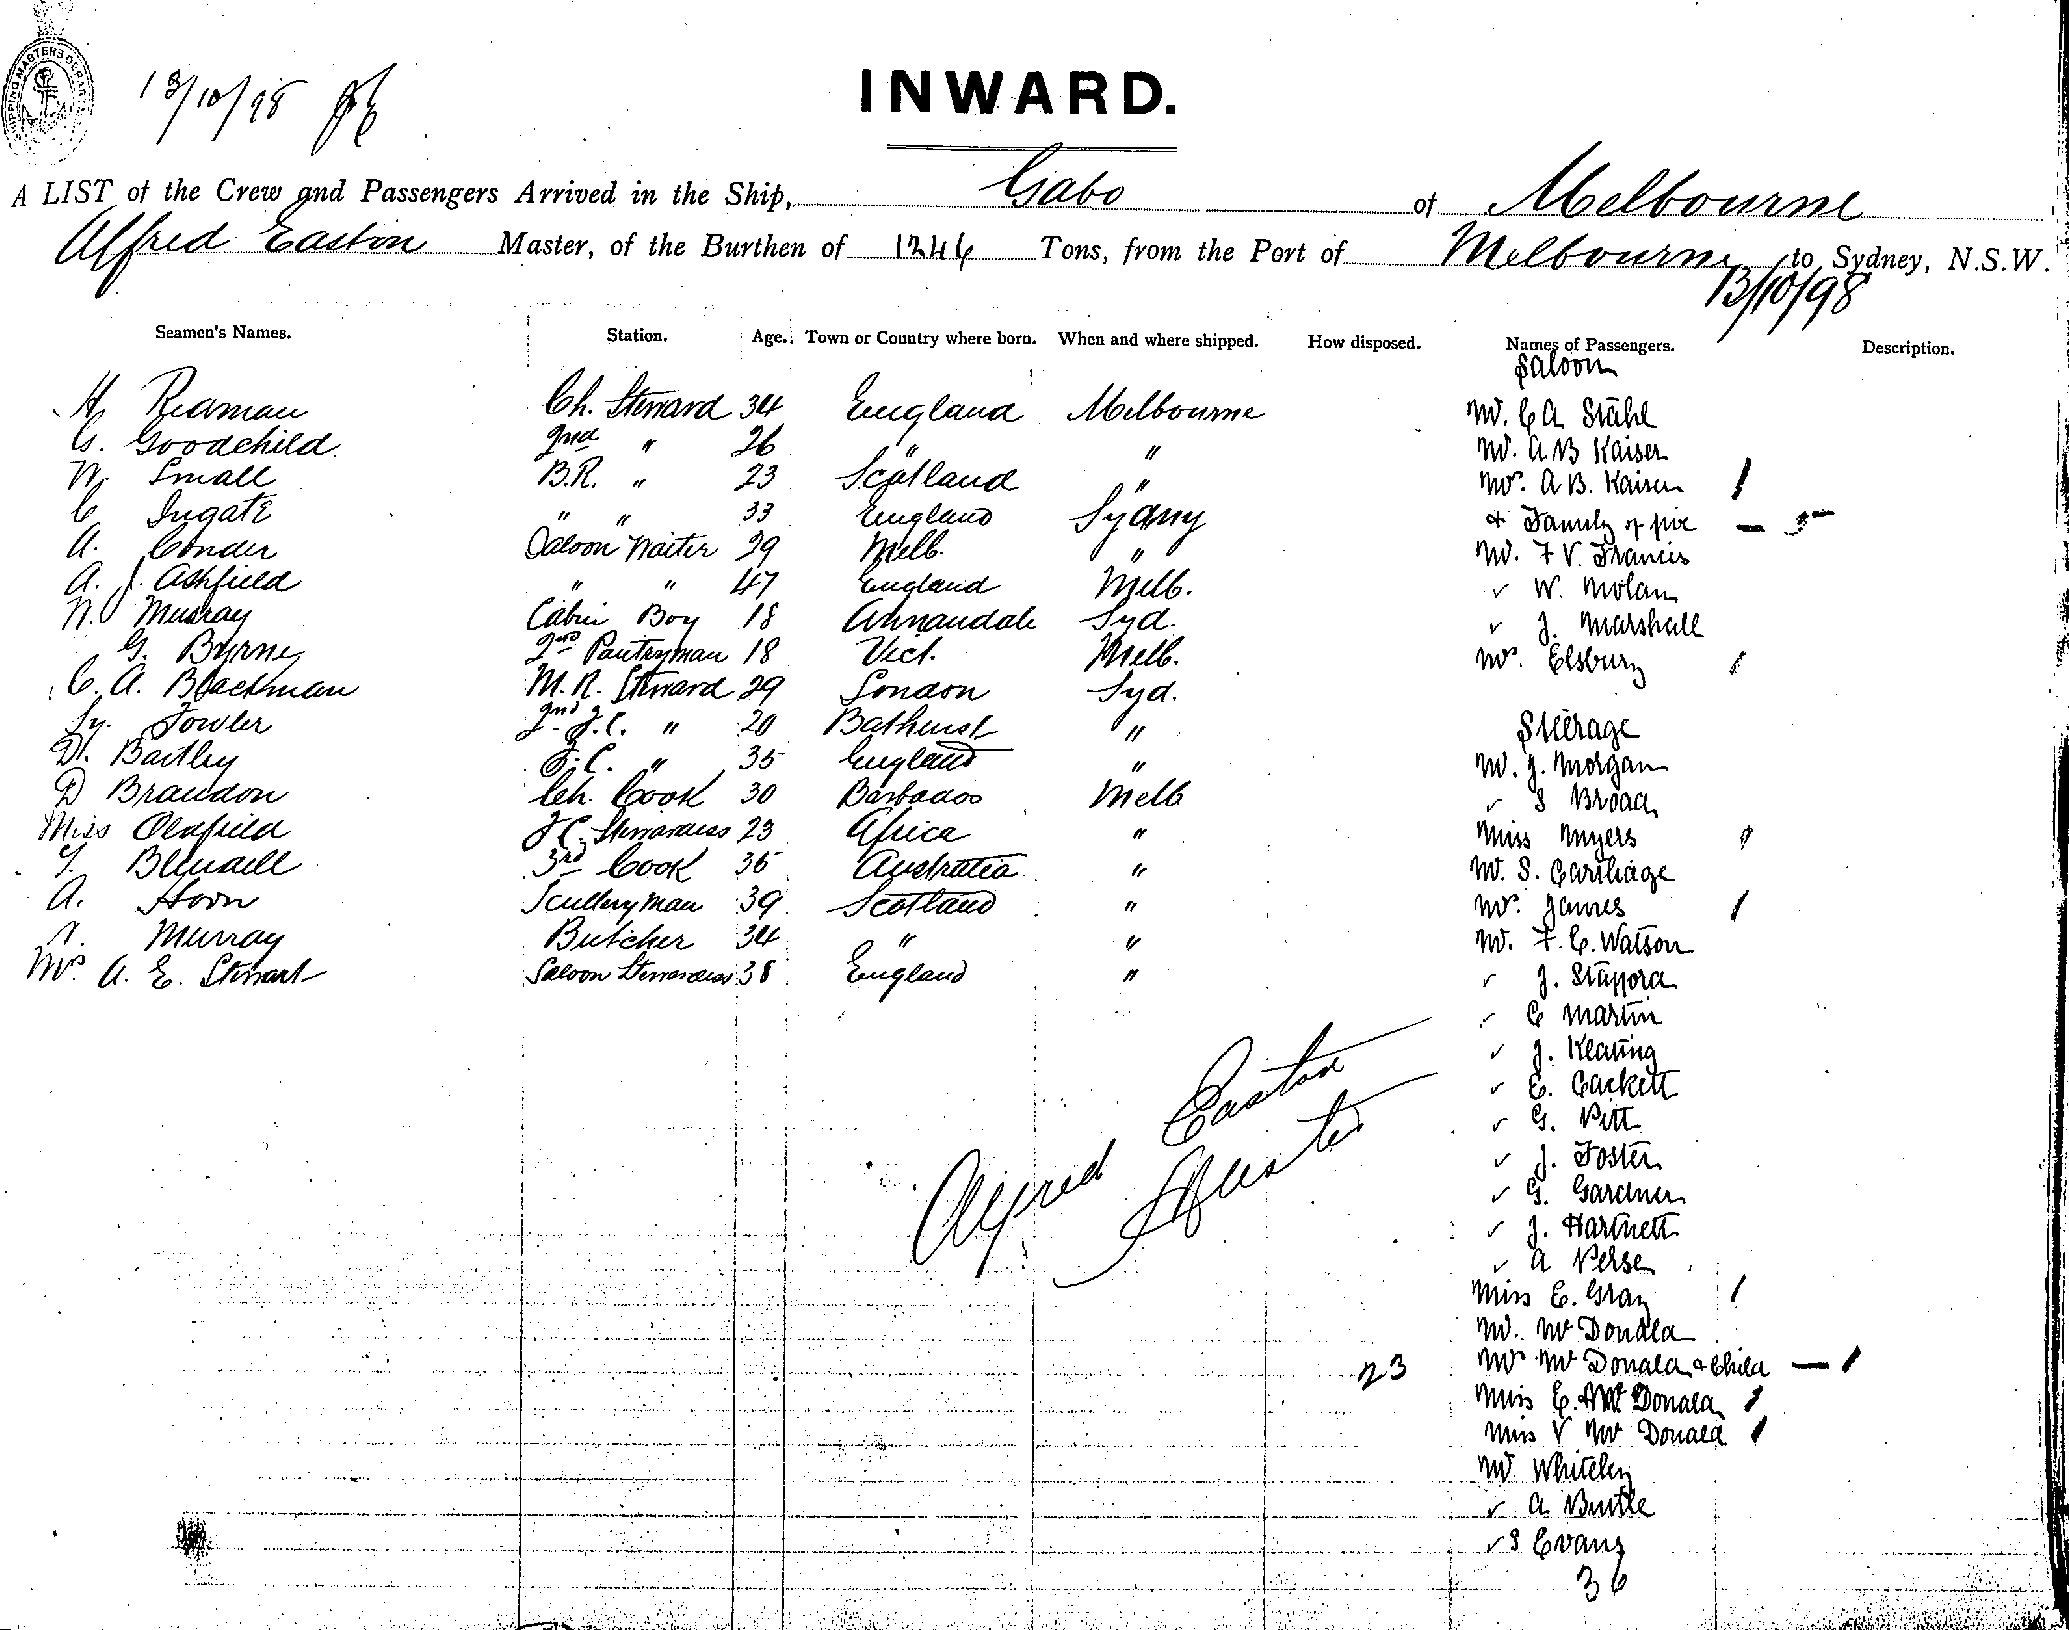 SHIPPING MASTERS DEPART
13/10/98
INWARD.
A LIST of the Crew and Passengers Arrived in the Ship, Gabo of Melbourne
Alfred Easton Master, of the Burthen of 1246 Tons, from the Port of Melbourne to Sydney, N.S.W.
13/10/98
Seamen's Names. Station. Age. Town or Country where born. When and where shipped. How disposed. Names of Passengers. Description.
Saloon
Ch. Steward 34 England Melbourne Mr. C A Stahl
G. Goodchild 2nd " 26 " " Mr. A B Kaiser
W. Small B.R. " 23 Scotland " Mrs. A B. Kaiser 1
C Ingate " " 33 England Sydny & Family of five — 5
A. Conder Saloon Waiter 29 Melb. " Mr. F V. Francis
A. J. Ashfield " " 47 England Melb. " W. Molan
N. Murray Cabin Boy 18 Annandale Syd. " J. Marshall
G. Byrne 2nd Pantryman 18 Vict. Melb. Mrs. Elsbury 1
C. A. Blackman M. R. Steward 29 London Syd.
Sy. Fowler 2nd F.C. " 20 Bathurst " Steerage
D. Bartley F.C. " 35 England " Mr. J. Morgan
D Brandon Ch. Cook 30 Barbados Melb " S Broad
Miss Oldfield F.C. Stewardess 23 Africa " Miss Myers 1
T. Blundell 3rd Cook 35 Australia " Mr. S. Carthage
A. Horn Scullery man 39 Scotland " Mrs. James 1
Murray Butcher 34 " " Mr. F. C. Watson
Mrs A. E. Stewart Saloon Stewardess 38 England " " J. Stafford
" C Martin
" J. Keating
" E. Cackett
" G. Pitt
" J. Foster
" G. Gardner
" J. Hartnett
" A Perse
Alfred Easton
Master
Miss E. Gray 1
Mr. McDonald
23 Mrs McDonald & Child — 1
Miss E. McDonald 1
Miss V McDonald 1
Mr Whiteley
" A Buttle
" S Evans
36